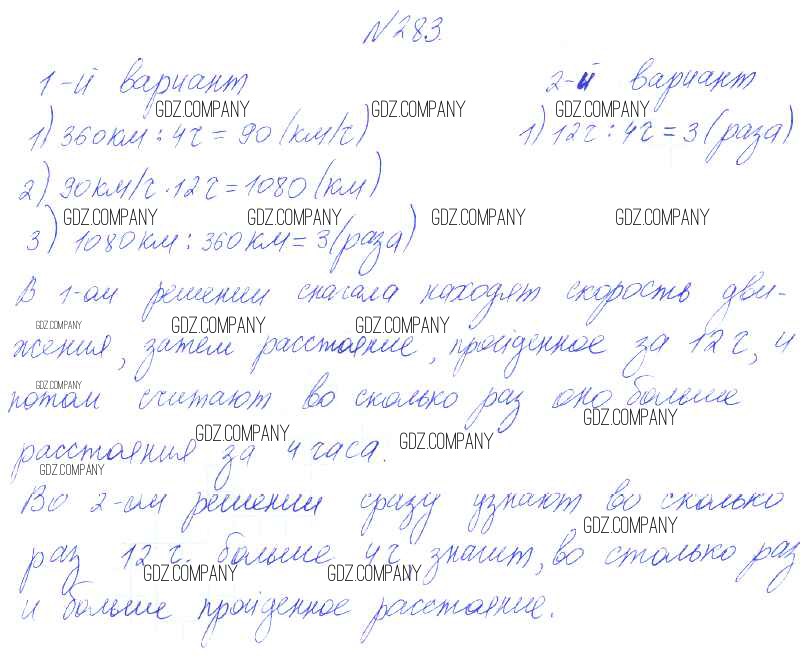 №283.
1-й вариант 2-й вариант
GDZ.COMPANY GDZ.COMPANY GDZ.COMPANY
1) 360км : 4ч = 90 (км/ч) 1) 12ч : 4ч = 3 (раза)
2) 90км/ч · 12ч = 1080 (км)
GDZ.COMPANY GDZ.COMPANY GDZ.COMPANY GDZ.COMPANY
3) 1080км : 360км = 3 (раза)
В 1-ом решении сначала находят скорость дви-
GDZ.COMPANY GDZ.COMPANY GDZ.COMPANY
жения, затем расстояние, пройденное за 12ч, и
GDZ.COMPANY
потом считают во сколько раз оно больше
GDZ.COMPANY GDZ.COMPANY GDZ.COMPANY
расстояния за 4 часа.
GDZ.COMPANY
Во 2-ом решении сразу узнают во сколько
GDZ.COMPANY
раз 12ч. больше 4ч значит, во столько раз
GDZ.COMPANY GDZ.COMPANY
и больше пройденное расстояние.